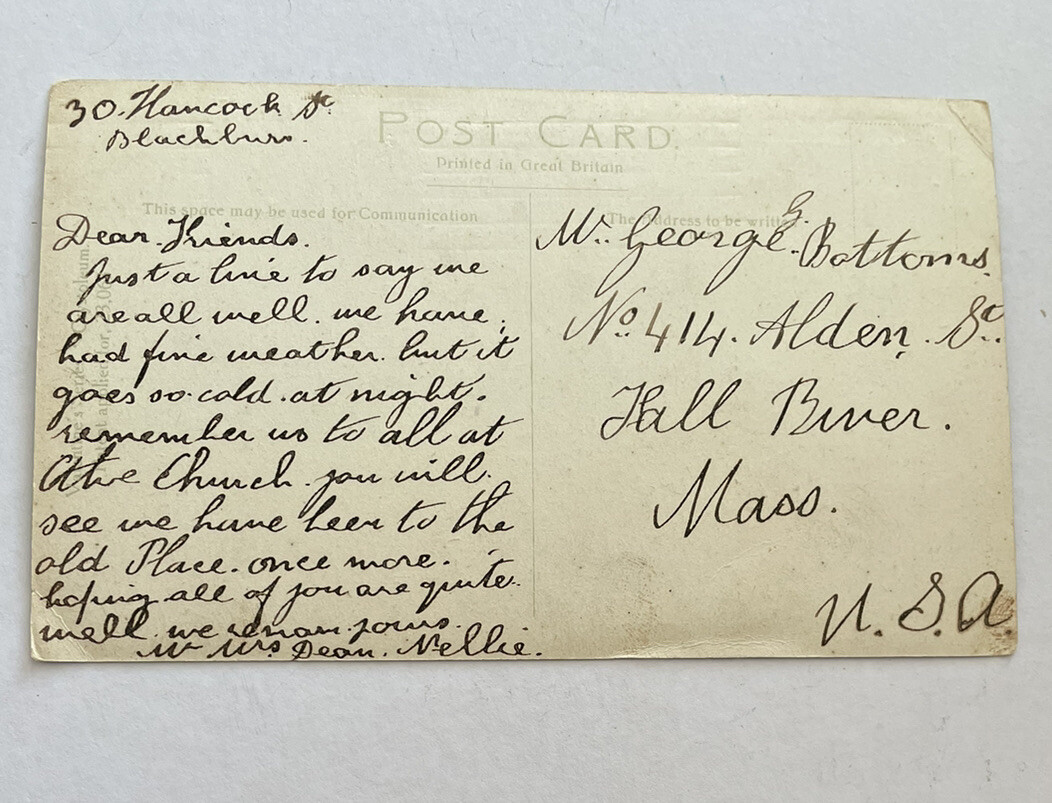 30. Hancock St
Blackburn.
POST CARD.
Printed in Great Britain
This space may be used for Communication
The Address to be written
Dear Friends.
Just a line to say we
are all well. we have
had fine weather. but it
goes so cold. at night.
remember us to all at
Church. you will
see we have been to the
old Place. once more.
hoping all of you are quite
well. we remain yours.
Mr Mrs Dean. Nellie.
Mr. George. G. Bottoms.
No. 414. Alden. St.
Fall River.
Mass.
U. S. A.